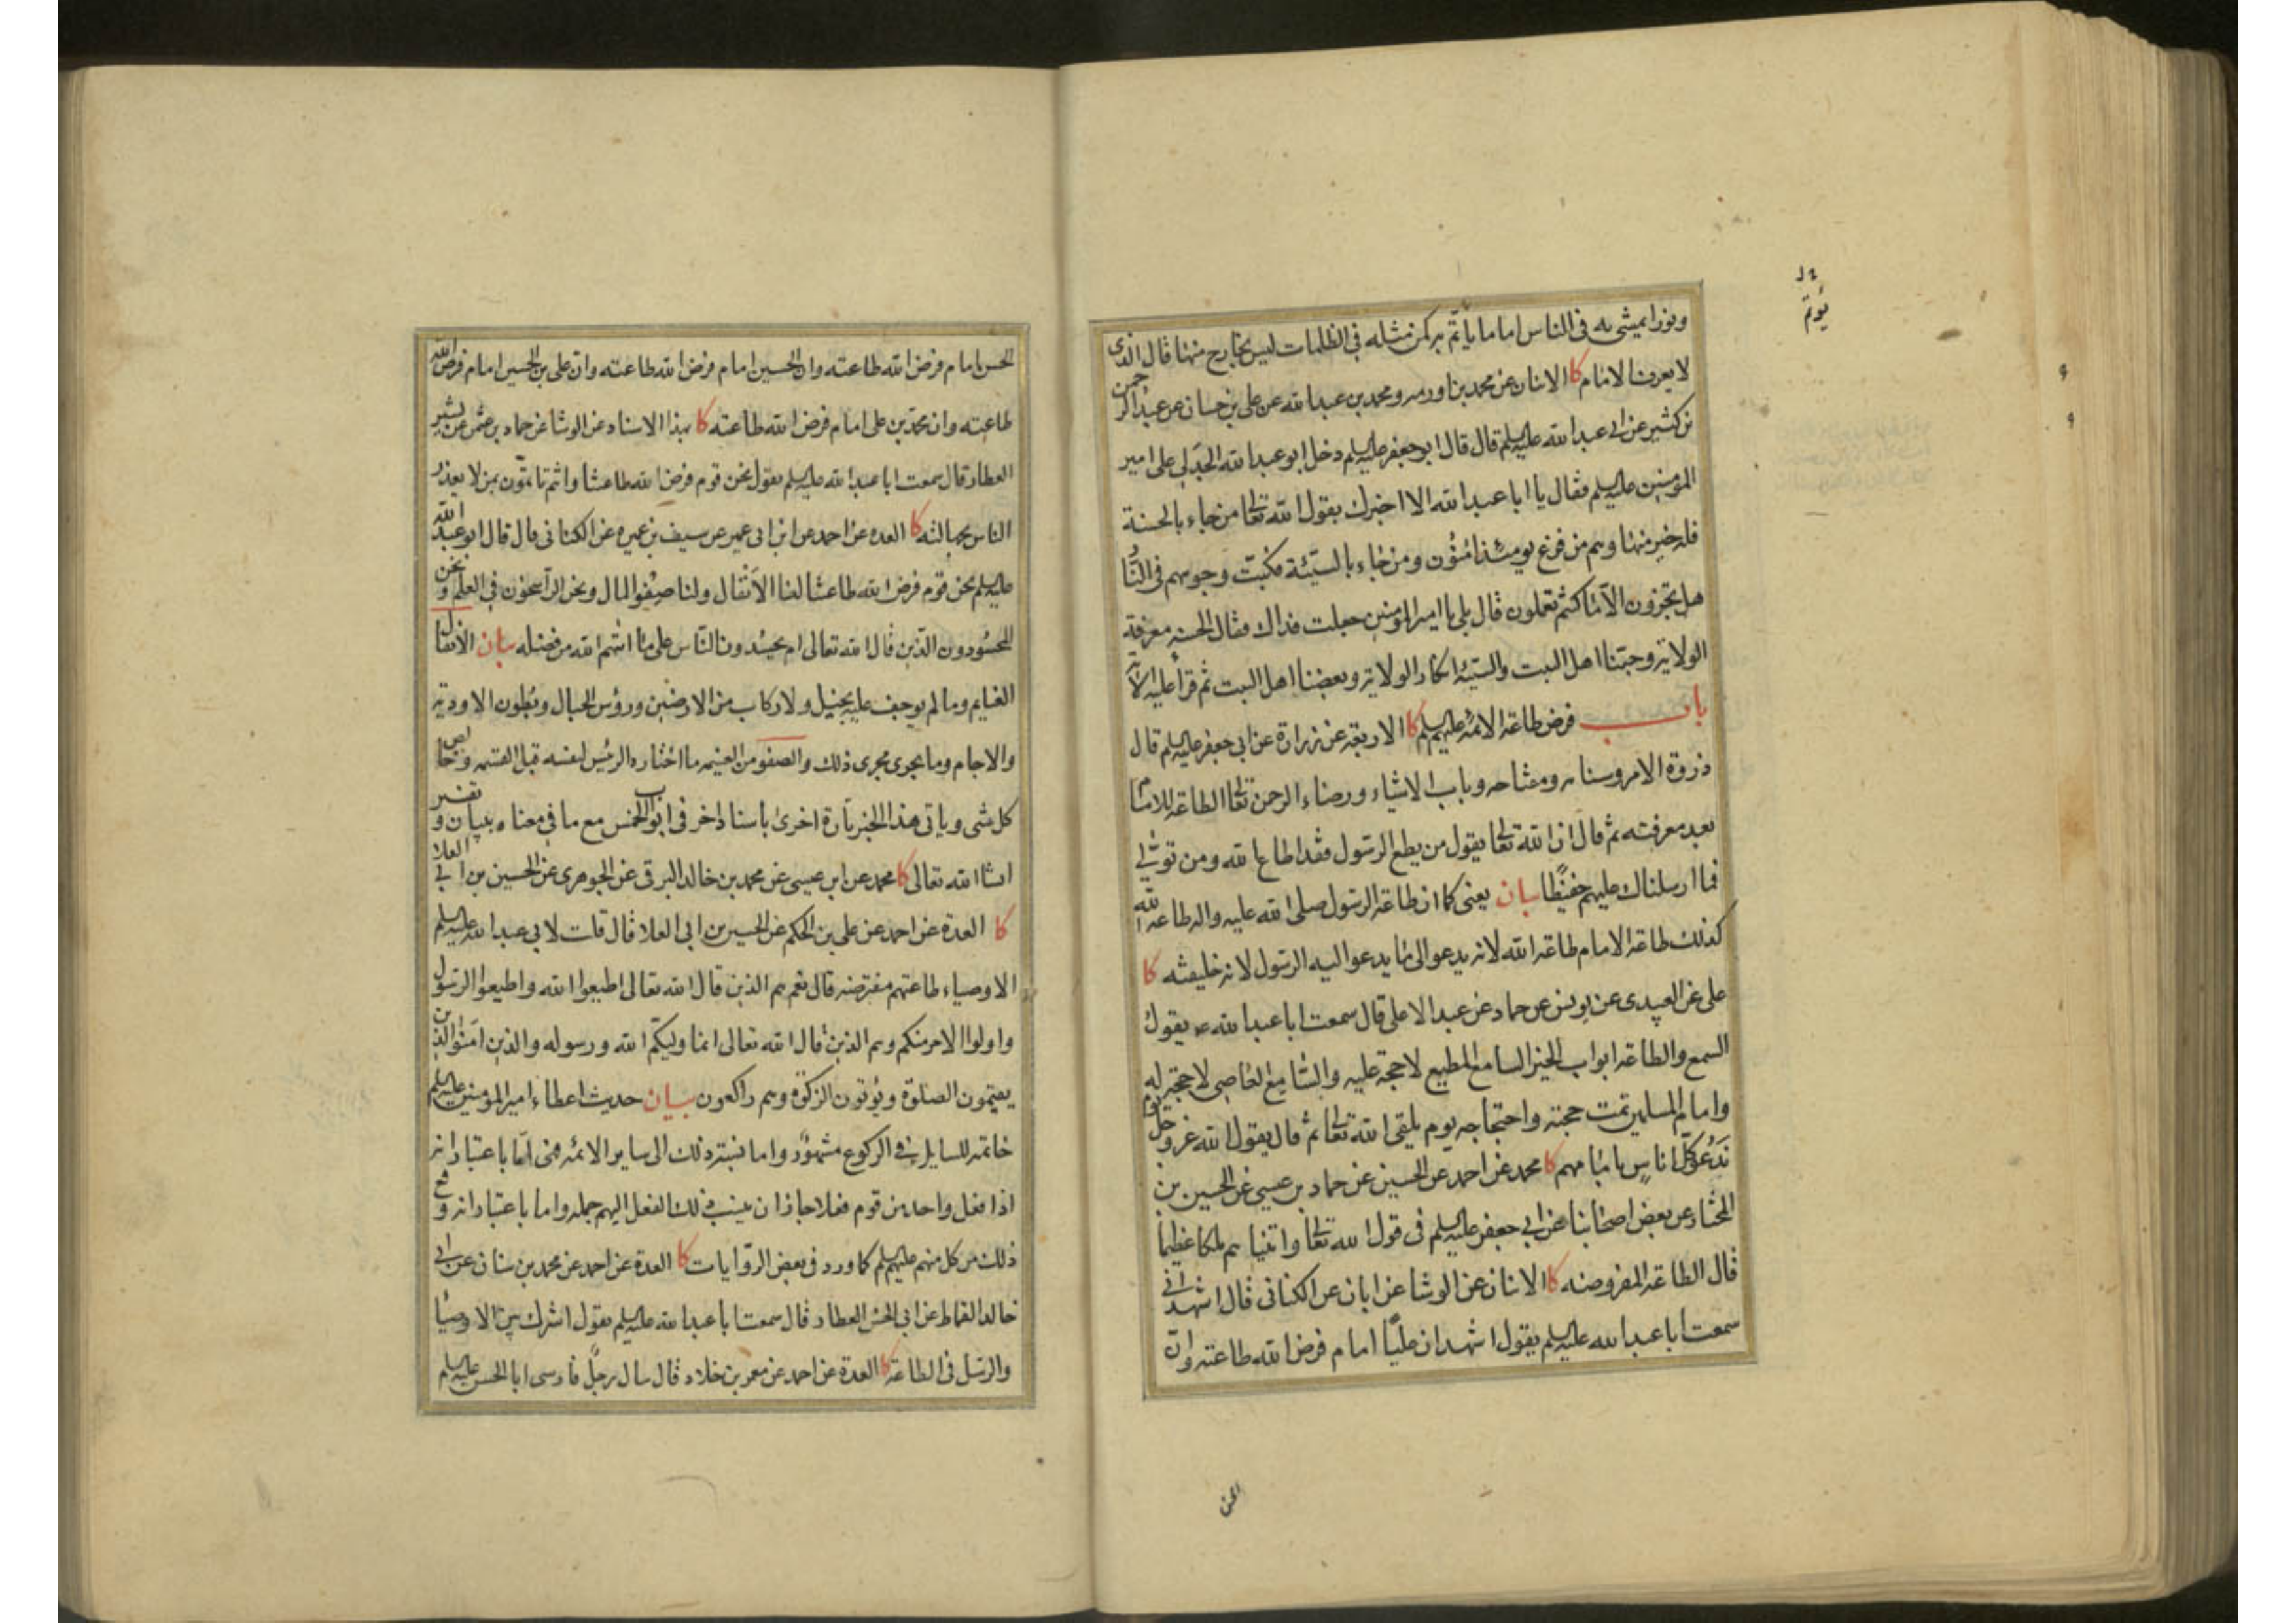 ونورا يمشي به في الناس اماما يأتم به كمن مثله في الظلمات ليس بخارج منها قال الذي
لا يعرف الامام كا الاثنان عن محمد بن اورمه ومحمد بن عبد الله عن علي بن حسان عن عبد الرحمن
بن كثير عن ابي عبد الله عليه السلم قال قال ابو جعفر عليه السلم دخل ابو عبد الله الجدلي على امير
المؤمنين عليه السلم فقال يا ابا عبد الله الا اخبرك بقول الله تعالى من جاء بالحسنة
فله خير منها وهم من فزع يومئذ امنون ومن جاء بالسيئة فكبت وجوههم في النار
هل تجزون الا ما كنتم تعملون قال بلى يا امير المؤمنين جعلت فداك فقال الحسنه معرفة
الولاية وحبنا اهل البيت والسيئه انكار الولاية وبغضنا اهل البيت ثم قرأ عليه الآية
باب فرض طاعة الائمه عليهم السلم كا الاربعة عن زرارة عن ابي جعفر عليه السلم قال
ذروة الامر وسنامه ومفتاحه وباب الاشياء ورضاء الرحمن تعالى الطاعة للامام
بعد معرفته ثم قال ان الله تعالى يقول من يطع الرسول فقد اطاع الله ومن تولى
فما ارسلناك عليهم حفيظا بيان يعني كما ان طاعة الرسول صلى الله عليه واله طاعة الله
كذلك طاعة الامام طاعة الله لانه يدعو الى ما يدعو اليه الرسول لانه خليفته كا
علي عن العبيدي عن يونس عن حماد عن عبد الاعلى قال سمعت ابا عبد الله ع يقول
السمع والطاعة ابواب الخير السامع المطيع لا حجة عليه والسامع العاصي لا حجة له
وامام المسلمين تمت حجته واحتجاجه يوم يلقى الله تعالى ثم قال يقول الله عز وجل يوم
ندعو كل اناس بامامهم كا محمد عن احمد عن الحسين عن حماد بن عيسى عن الحسين بن
المختار عن بعض اصحابنا عن ابي جعفر عليه السلم في قول الله تعالى واتيناهم ملكا عظيما
قال الطاعة المفروضه كا الاثنان عن الوشا عن ابان عن الكناني قال اشهد اني
سمعت ابا عبد الله عليه السلم يقول اشهد ان عليا امام فرض الله طاعته وان
يؤتم
الحسن
الحسن امام فرض الله طاعته وان الحسين امام فرض الله طاعته وان علي بن الحسين امام فرض الله
طاعته وان محمد بن علي امام فرض الله طاعته كا بهذا الاسناد عن الوشا عن حماد بن عثمن عن بشير
العطار قال سمعت ابا عبد الله عليه السلم يقول نحن قوم فرض الله طاعتنا وانتم تاتمون بمن لا يعذر
الناس بجهالته كا العده عن احمد عن ابن ابي عمير عن سيف بن عميره عن الكناني قال قال ابو عبد الله
عليه السلم نحن قوم فرض الله طاعتنا لنا الانفال ولنا صفو المال ونحن الراسخون في العلم ونحن
المحسودون الذين قال الله تعالى ام يحسدون الناس على ما اتهم الله من فضله بيان الانفال
الغنايم وما لم يوجف عليه بخيل ولا ركاب من الارضين ورؤس الجبال وبطون الاودية
والاجام وما يجري مجرى ذلك والصفو من الغنيمه ما اختاره الرئيس لنفسه قبل القسمه وخالص
كل شى وياتى هذا الخبر تارة اخرى باسناد اخر في ابواب الخمس مع ما في معناه ببيان وتفسير
انشا الله تعالى كا محمد عن ابن عيسى عن محمد بن خالد البرقي عن الجوهري عن الحسين بن ابي العلا
كا العدة عن احمد عن علي بن الحكم عن الحسين بن ابي العلا قال قلت لابي عبد الله عليه السلم
الاوصياء طاعتهم مفترضه قال نعم هم الذين قال الله تعالى اطيعوا الله واطيعوا الرسول
واولوا الامر منكم وهم الذين قال الله تعالى انما وليكم الله ورسوله والذين امنوا الذين
يقيمون الصلوة ويؤتون الزكوة وهم راكعون بيان حديث اعطاء امير المؤمنين عليه السلم
خاتمه للسايل في الركوع مشهور واما نسبة ذلك الى ساير الائمه فهي اما باعتبار انه
اذا فعل واحد من قوم فعلا جاز ان ينسب ذلك الفعل اليهم جمله واما باعتبار انه وقع
ذلك من كل منهم عليهم السلم كما ورد في بعض الروايات كا العدة عن احمد عن محمد بن سنان عن ابي
خالد القماط عن ابي الحسن العطار قال سمعت ابا عبد الله عليه السلم يقول اشرك بين الاوصيا
والرسل في الطاعة كا العدة عن احمد عن معمر بن خلاد قال سال رجل فارسى ابا الحسن عليه السلم